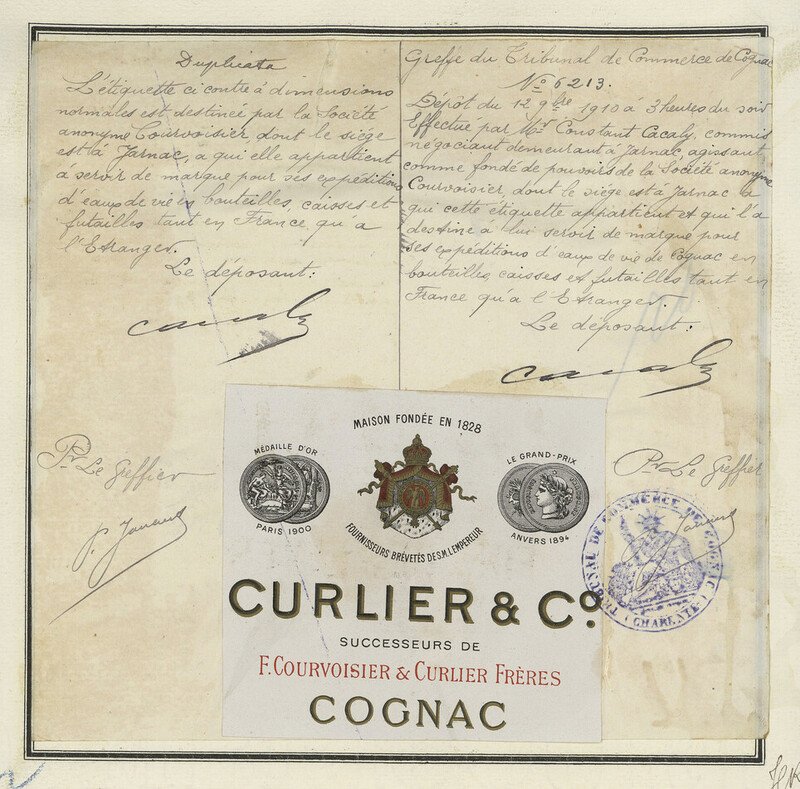 Duplicata
L'étiquette ci contre à dimensions
normales est, destinée par la Société
anonyme Courvoisier, dont le siège
est à Jarnac, a qui elle appartient
à servir de marque pour ses expéditions
d'eaux de vie en bouteilles, caisses et
futailles tant en France, qu'a
l'Etranger.
Le déposant:
Cacaly
Pr Le Greffier
Greffe du Tribunal de Commerce de Cognac
No 6213.
Dépôt du 12 9bre 1910 à 3 heures du soir
Effectué par Mr Constant Cacaly, commis
négociant demeurant à Jarnac, agissant
comme fondé de pouvoirs de la Société anonyme
Courvoisier, dont le siège est à Jarnac a
qui cette étiquette appartient et qui l'a
destine a lui servir de marque pour
ses expéditions d'eaux de vie de Cognac en
bouteilles, caisses et futailles tant en
France qu'a l'Etranger.
Le déposant:
Cacaly
Pr Le Greffier
TRIBUNAL DE COMMERCE DE COGNAC
(CHARENTE)
MAISON FONDÉE EN 1828
MÉDAILLE D'OR
PARIS 1900
LE GRAND-PRIX
ANVERS 1894
FOURNISSEURS BRÉVETÉS DE S.M. L'EMPEREUR
CURLIER & Co.
SUCCESSEURS DE
F. COURVOISIER & CURLIER FRÈRES
COGNAC